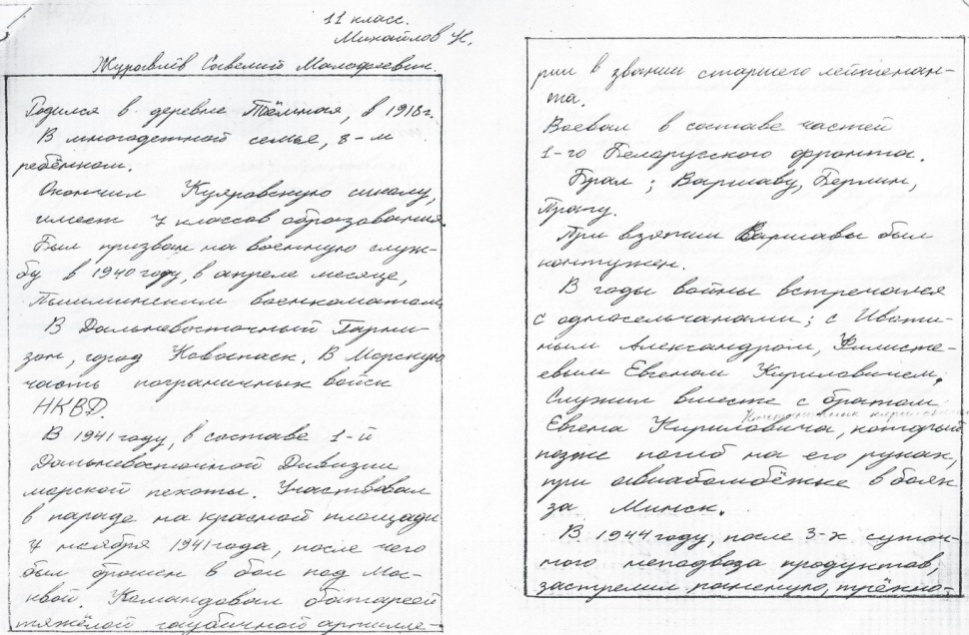 11 класс.
Михайлов Н.
Журавлёв Савелий Малофеевич.
Родился в деревне Тёмная, в 1918г.
В многодетной семье, 8-м
ребёнком.
Окончил Куяровскую школу,
имеет 7 классов образования.
Был призван на военную служ-
бу в 1940 году, в апреле месяце,
Пышминским военкоматом,
В Дальневосточный Гарни-
зон, город Новоспаск. В Морскую
часть пограничных войск
НКВД.
В 1941 году, в составе 1-й
Дальневосточной Дивизии
морской пехоты. Участвовал
в параде на красной площади
7 ноября 1941 года, после чего
был брошен в бой под Мос-
квой. Командовал батареей
тяжёлой гаубичной артилле-
рии в звании старшего лейтенан-
та.
Воевал в составе частей
1-го Белорусского фронта.
Брал; Варшаву, Берлин,
Прагу.
При взятии Варшавы был
контужен.
В годы войны встречался
с односельчанами; с Ивати-
ным Александром, Филисте-
евым Евгеном Кириловичем.
Служил вместе с братом
Евгена Кириловича, который
позже погиб на его руках,
при авиабомбёжке в боях
за Минск.
В 1944 году, после 3-х суточ-
ного неподвоза продуктов,
застрелил раненую, трёхно-